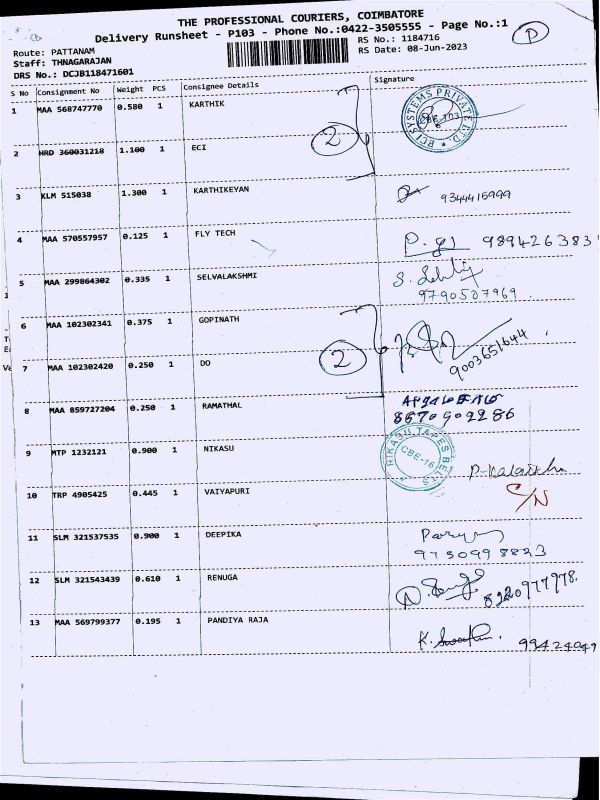 THE PROFESSIONAL COURIERS, COIMBATORE
Delivery Runsheet - P103 - Phone No.:0422-3505555 - Page No.:1
Route: PATTANAM
RS No.: 1184716
Staff: THNAGARAJAN
RS Date: 08-Jun-2023
DRS No.: DCJB118471601
D
S No Consignment No Weight PCS Consignee Details Signature
1 MAA 568747770 0.580 1 KARTHIK
2
RCI SYSTEMS PRIVATE LTD.
CBE-103
2 HRD 360031218 1.100 1 ECI
3 KLM 515038 1.300 1 KARTHIKEYAN 9344415999
4 MAA 570557957 0.125 1 FLY TECH 989426383
5 MAA 299864302 0.335 1 SELVALAKSHMI
9790507969
6 MAA 102302341 0.375 1 GOPINATH
2
9003651644
7 MAA 102302420 0.250 1 DO
8 MAA 859727204 0.250 1 RAMATHAL
8870902286
9 MTP 1232121 0.900 1 NIKASU
NIKASU TAPES BELTS
CBE-16
10 TRP 4905425 0.445 1 VAIYAPURI C/N
11 SLM 321537535 0.900 1 DEEPIKA
9750998823
12 SLM 321543439 0.610 1 RENUGA 8220977978.
13 MAA 569799377 0.195 1 PANDIYA RAJA 99424049